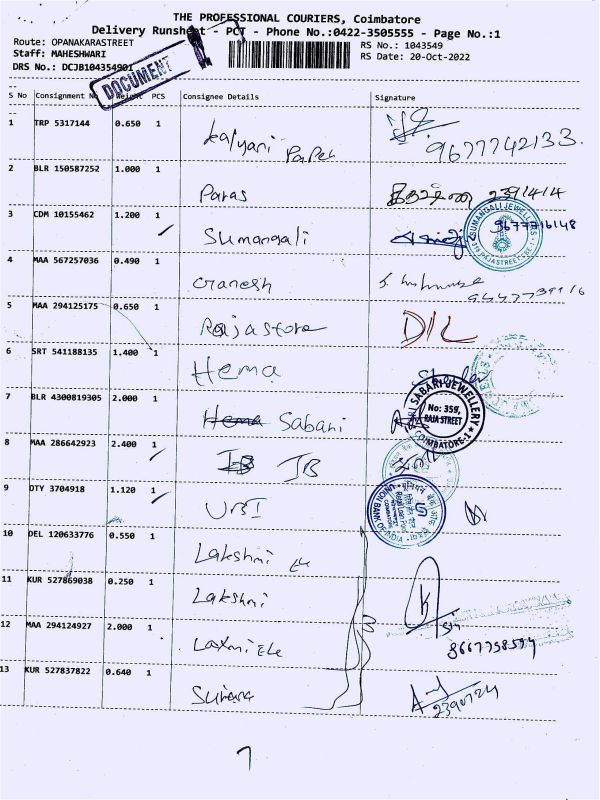 THE PROFESSIONAL COURIERS, Coimbatore
Delivery Runsheet - PCT - Phone No.:0422-3505555 - Page No.:1
Route: OPANAKARASTREET
RS No.: 1043549
Staff: MAHESHWARI
RS Date: 20-Oct-2022
DRS No.: DCJB104354901
DOCUMENT
S No Consignment No Weight PCS Consignee Details Signature
1 TRP 5317144 0.650 1 Kalyani Paper 9677742133.
2 BLR 150587252 1.000 1 Paras 2391414
3 CDM 10155462 1.200 1 Sumangali 9677716148
SUMANGALI JEWELLERS
4 MAA 567257036 0.490 1 Ganesh
5 MAA 294125175 0.650 1 Raja store D/L
6 SRT 541188135 1.400 1 Hema
7 BLR 4300819305 2.000 1 Hema Sabari
SABARI JEWELLERY
No: 359,
RAJA STREET
COIMBATORE-1
8 MAA 286642923 2.400 1 IB JB
9 DTY 3704918 1.120 1 UBI
UNION BANK OF INDIA
10 DEL 120633776 0.550 1 Lakshmi Ele
11 KUR 527869038 0.250 1 Lakshmi
12 MAA 294124927 2.000 1 Laxmi Ele 8667758594
13 KUR 527837822 0.640 1 Surana 2390724
7